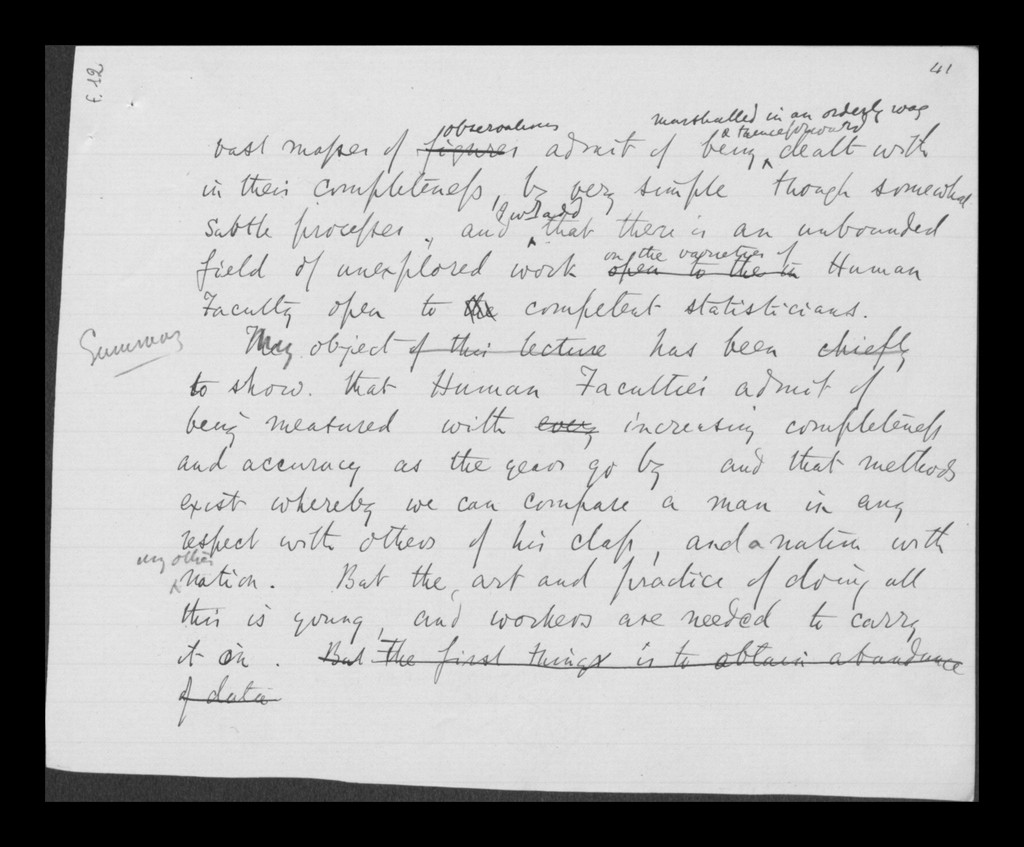 f.12
41
observations marshalled in an orderly way
& thenceforward
vast masses of figures admit of being dealt with
in their completeness, by very simple though somewhat
I will add
subtle processes, and that there is an unbounded
on the varieties of
field of unexplored work open to the in Human
Faculty open to the competent statisticians.
Summary
My object of this lecture has been chiefly
to show that Human Faculties admit of
being measured with every increasing completeness
and accuracy as the years go by and that methods
exist whereby we can compare a man in any
respect with others of his class, and a nation with
any other
nation. But the art and practice of doing all
this is young, and workers are needed to carry
it on. But the first things is to obtain abundance
of data